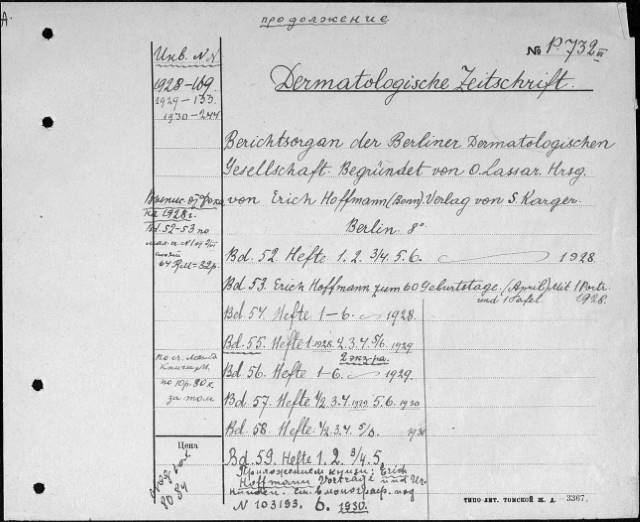 А.
продолжение
№ P.732 III
Инв. N N
1928-169
1929-133
1930-244
Dermatologische Zeitschrift.
Berichtsorgan der Berliner Dermatologischen
Gesellschaft. Begründet von O. Lassar. Hrsg.
von Erich Hoffmann (Bonn). Verlag von S. Karger.
Berlin 8°
на 1928 г.
Bd. 52-53 по
64 RM = 32 р.
Bd. 52 Hefte 1. 2. 3/4. 5. 6. 1928.
Bd. 53. Erich Hoffmann zum 60 Geburtstage. (April) Mit 1 Portr.
und 1 Tafel 1928.
Bd. 54 Hefte 1-6. 1928.
Bd. 55. Hefte 1. 1928. 2. 3. 4. 5/6. 1929
2 экз-ра.
Bd. 56. Hefte 1-6. 1929.
Bd. 57. Hefte 1/2. 3. 4. 1929. 5. 6. 1930
Bd. 58. Hefte 1/2. 3. 4. 5/6. 1930
по 10 р. 80 к
за том
Цена
Bd. 59. Hefte 1. 2. 3/4. 5.
Приложением книги: Erich
Hoffmann Vorträge und Ur-
kunden. См. в монограф. под
N 103193. 6. 1930.
ТИПО ЛИТ. ТОМСКОЙ Ж. Д. 3367.